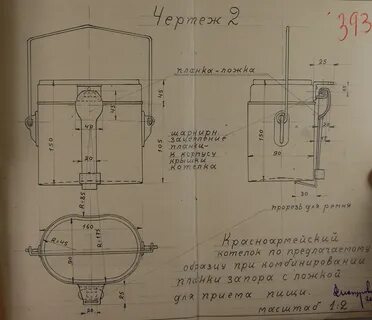 Чертеж 2
393
планка-ложка
25
45
45
40
150
шарнирн.
зацепление
планки
к корпусу
крышки
котелка
105
150
20
90
15
R=85
30
прорезь для ремня
160
R=45
90
R=175
25
Красноармейский
котелок по предлагаемому
образцу при комбинировании
планки запора с ложкой
для приема пищи.
масштаб 1:2